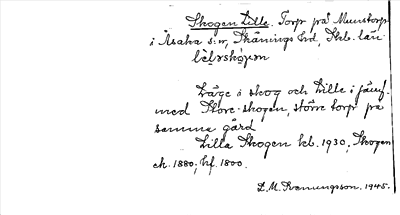 Skogen Lille. Torp på Munstorp
i Åsaka s:n, Skånings hd, Skb. län
Läge i skog och Lille i jämf.
med Store-skogen, större torp på
samma gård
Lilla Skogen kb. 1930, Skogen
ek. 1880, hf. 1800.
L. M. Svenungsson. 1945.